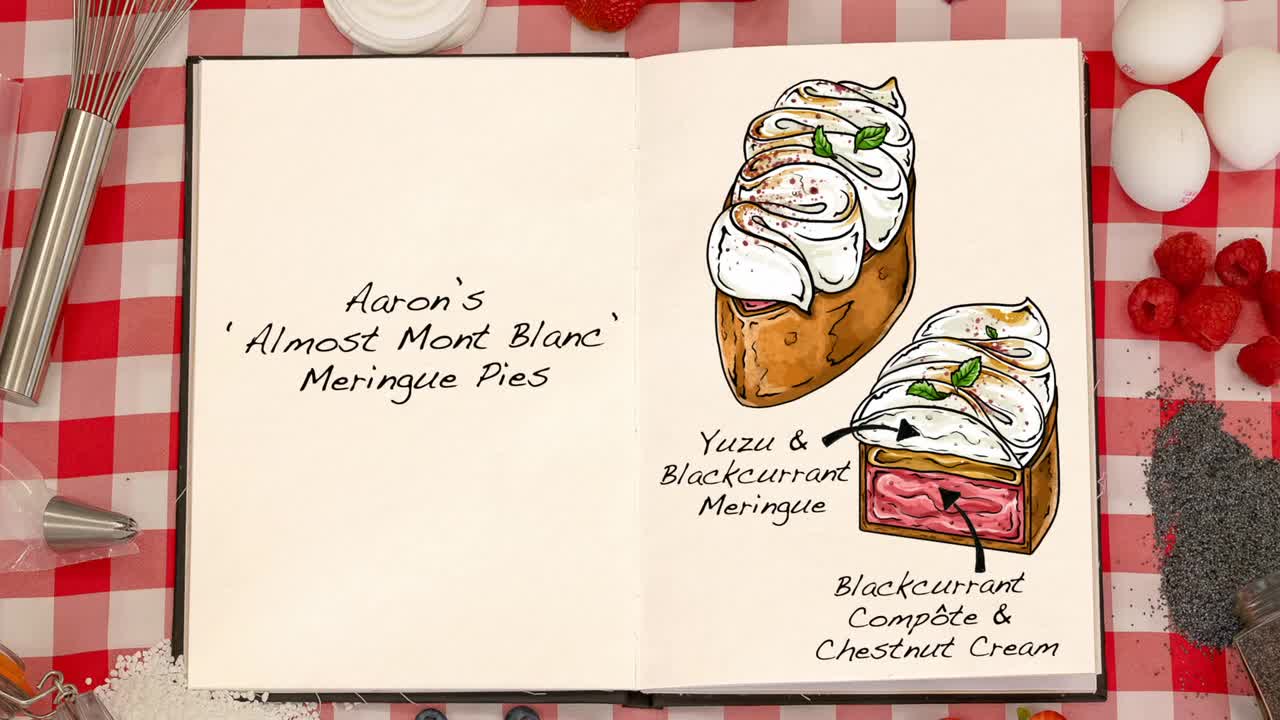 Aaron's
'Almost Mont Blanc'
Meringue Pies
Yuzu &
Blackcurrant
Meringue
Blackcurrant
Compôte &
Chestnut Cream